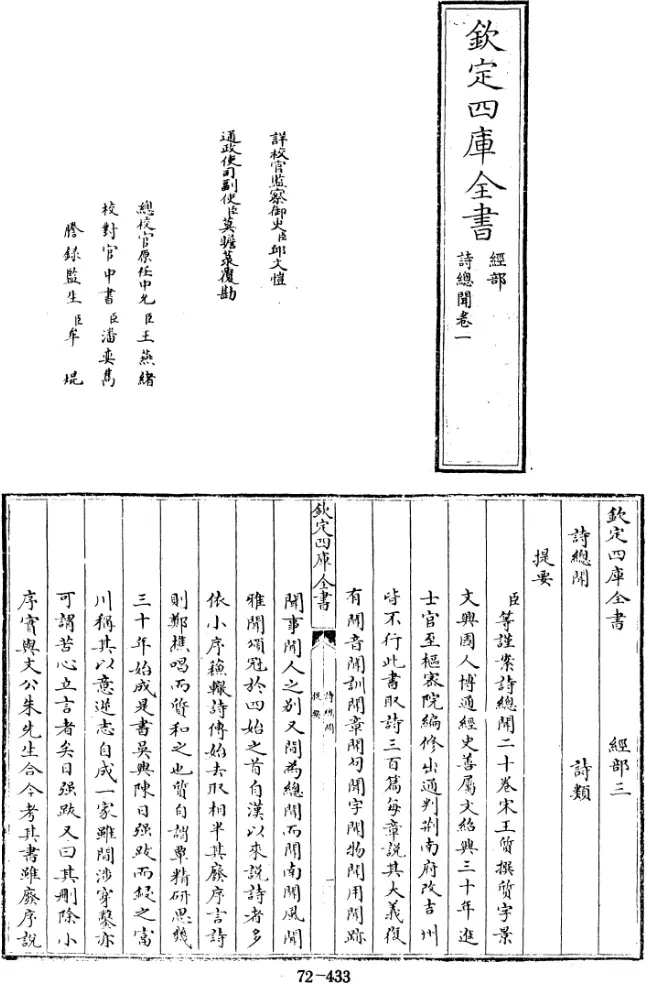 欽定四庫全書
經部
詩總聞卷一
詳校官監察御史臣邱文愷
通政使司副使臣莫瞻菉覆勘
總校官原任中允臣王燕緒
校對官中書臣潘奕雋
謄錄監生臣牟崐
欽定四庫全書　經部三
詩總聞　詩類
提要
臣等謹案詩總聞二十卷宋王質撰質字景
文興國人博通經史善屬文紹興三十年進
士官至樞密院編修出通判荆南府改吉州
皆不行此書取詩三百篇每章說其大義復
有聞音聞訓聞章聞句聞字聞物聞用聞跡
欽定四庫全書
詩總聞
提要
一
聞事聞人之別又間為總聞而聞南聞風聞
雅聞頌冠於四始之首自漢以來說詩者多
依小序蘓轍詩傳始去取相半其廢序言詩
則鄭樵唱而質和之也質自謂覃精研思幾
三十年始成是書吳興陳日强跋而鋟之富
川稱其以意逆志自成一家雖間涉穿鑿亦
可謂苦心立言者矣日强跋又曰其刪除小
序實與文公朱先生合今考其書雖廢序說
72-433